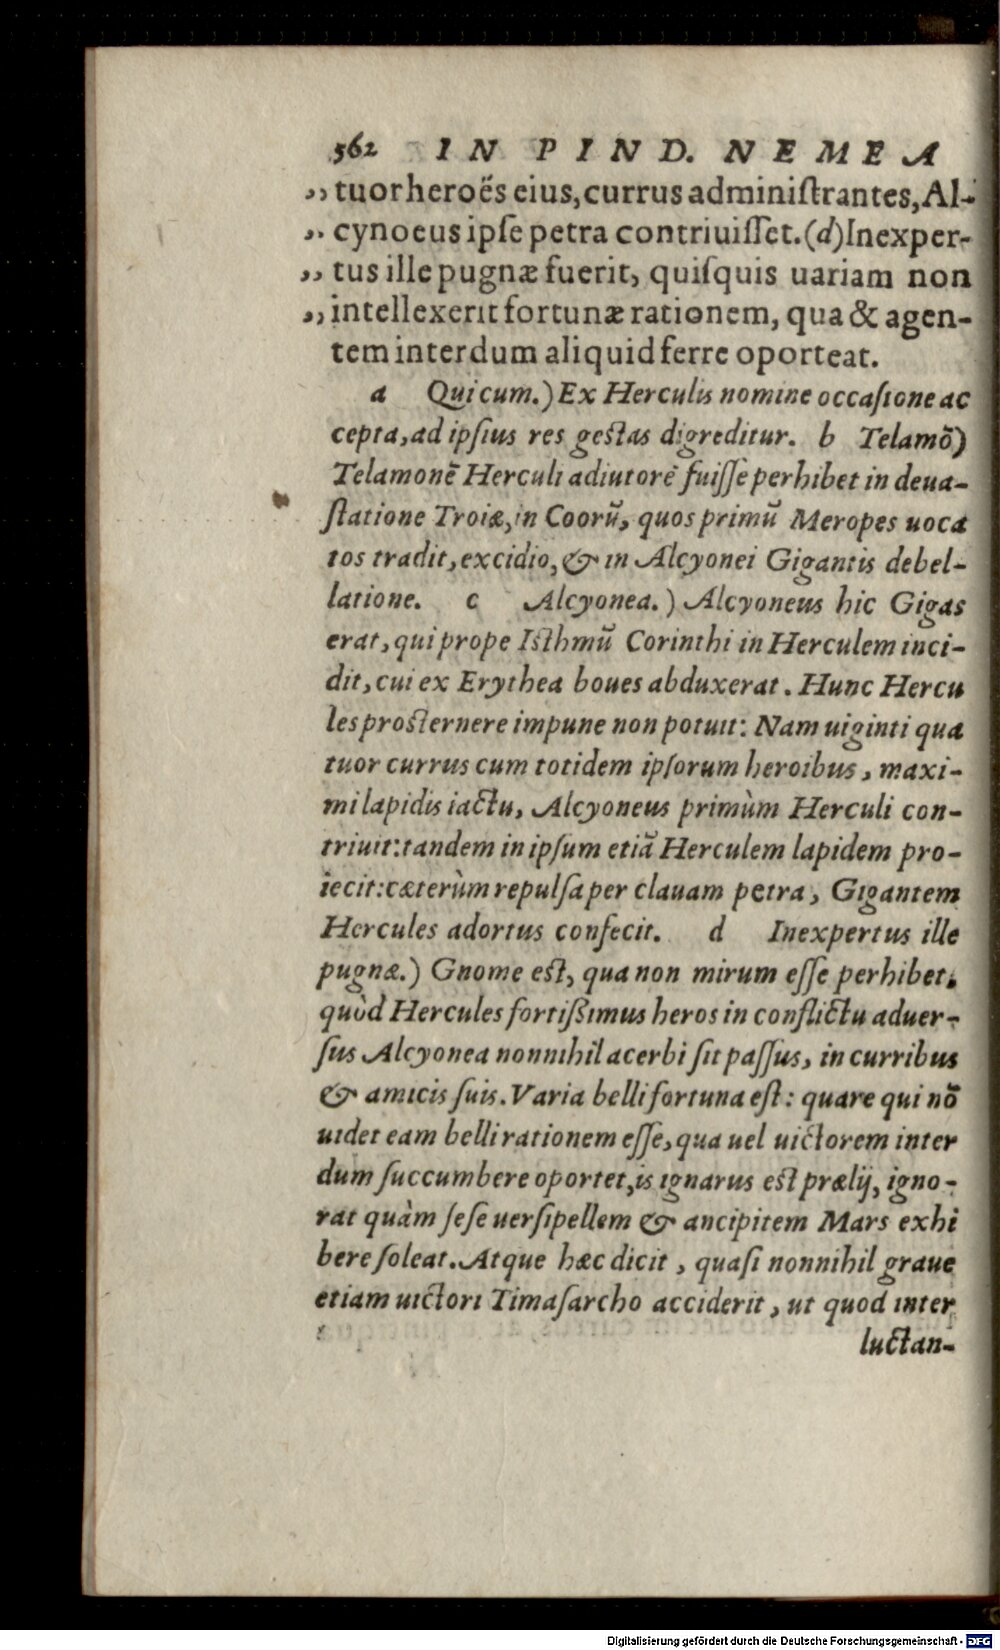 562 IN PIND. NEMEA
,, tuor heroës eius, currus adminiſtrantes, Al-
,, cynoeus ipſe petra contriuiſſet. (d) Inexper-
,, tus ille pugnæ fuerit, quiſquis uariam non
,, intellexerit fortunæ rationem, qua & agen-
tem interdum aliquid ferre oporteat.
a Qui cum.) Ex Herculis nomine occaſione ac
cepta, ad ipſius res geſtas digreditur. b Telamõ)
Telamonẽ Herculi adiutorẽ fuiſſe perhibet in deua-
ſtatione Troiæ, in Coorũ, quos primũ Meropes uoca
tos tradit, excidio, & in Alcyonei Gigantis debel-
latione. c Alcyonea.) Alcyoneus hic Gigas
erat, qui prope Iſthmũ Corinthi in Herculem inci-
dit, cui ex Erythea boues abduxerat. Hunc Hercu
les proſternere impune non potuit: Nam uiginti qua
tuor currus cum totidem ipſorum heroibus, maxi-
mi lapidis iactu, Alcyoneus primùm Herculi con-
triuit: tandem in ipſum etiã Herculem lapidem pro-
iecit: cæterùm repulſa per clauam petra, Gigantem
Hercules adortus confecit. d Inexpertus ille
pugnæ.) Gnome eſt, qua non mirum eſſe perhibet,
quòd Hercules fortiſsimus heros in conflictu aduer-
ſus Alcyonea nonnihil acerbi ſit paſſus, in curribus
& amicis ſuis. Varia belli fortuna eſt: quare qui nõ
uidet eam belli rationem eſſe, qua uel uictorem inter
dum ſuccumbere oportet, is ignarus eſt prælij, igno-
rat quàm ſeſe uerſipellem & ancipitem Mars exhi
bere ſoleat. Atque hæc dicit, quaſi nonnihil graue
etiam uictori Timaſarcho acciderit, ut quod inter
luctan-
Digitalisierung gefördert durch die Deutsche Forschungsgemeinschaft - DFG